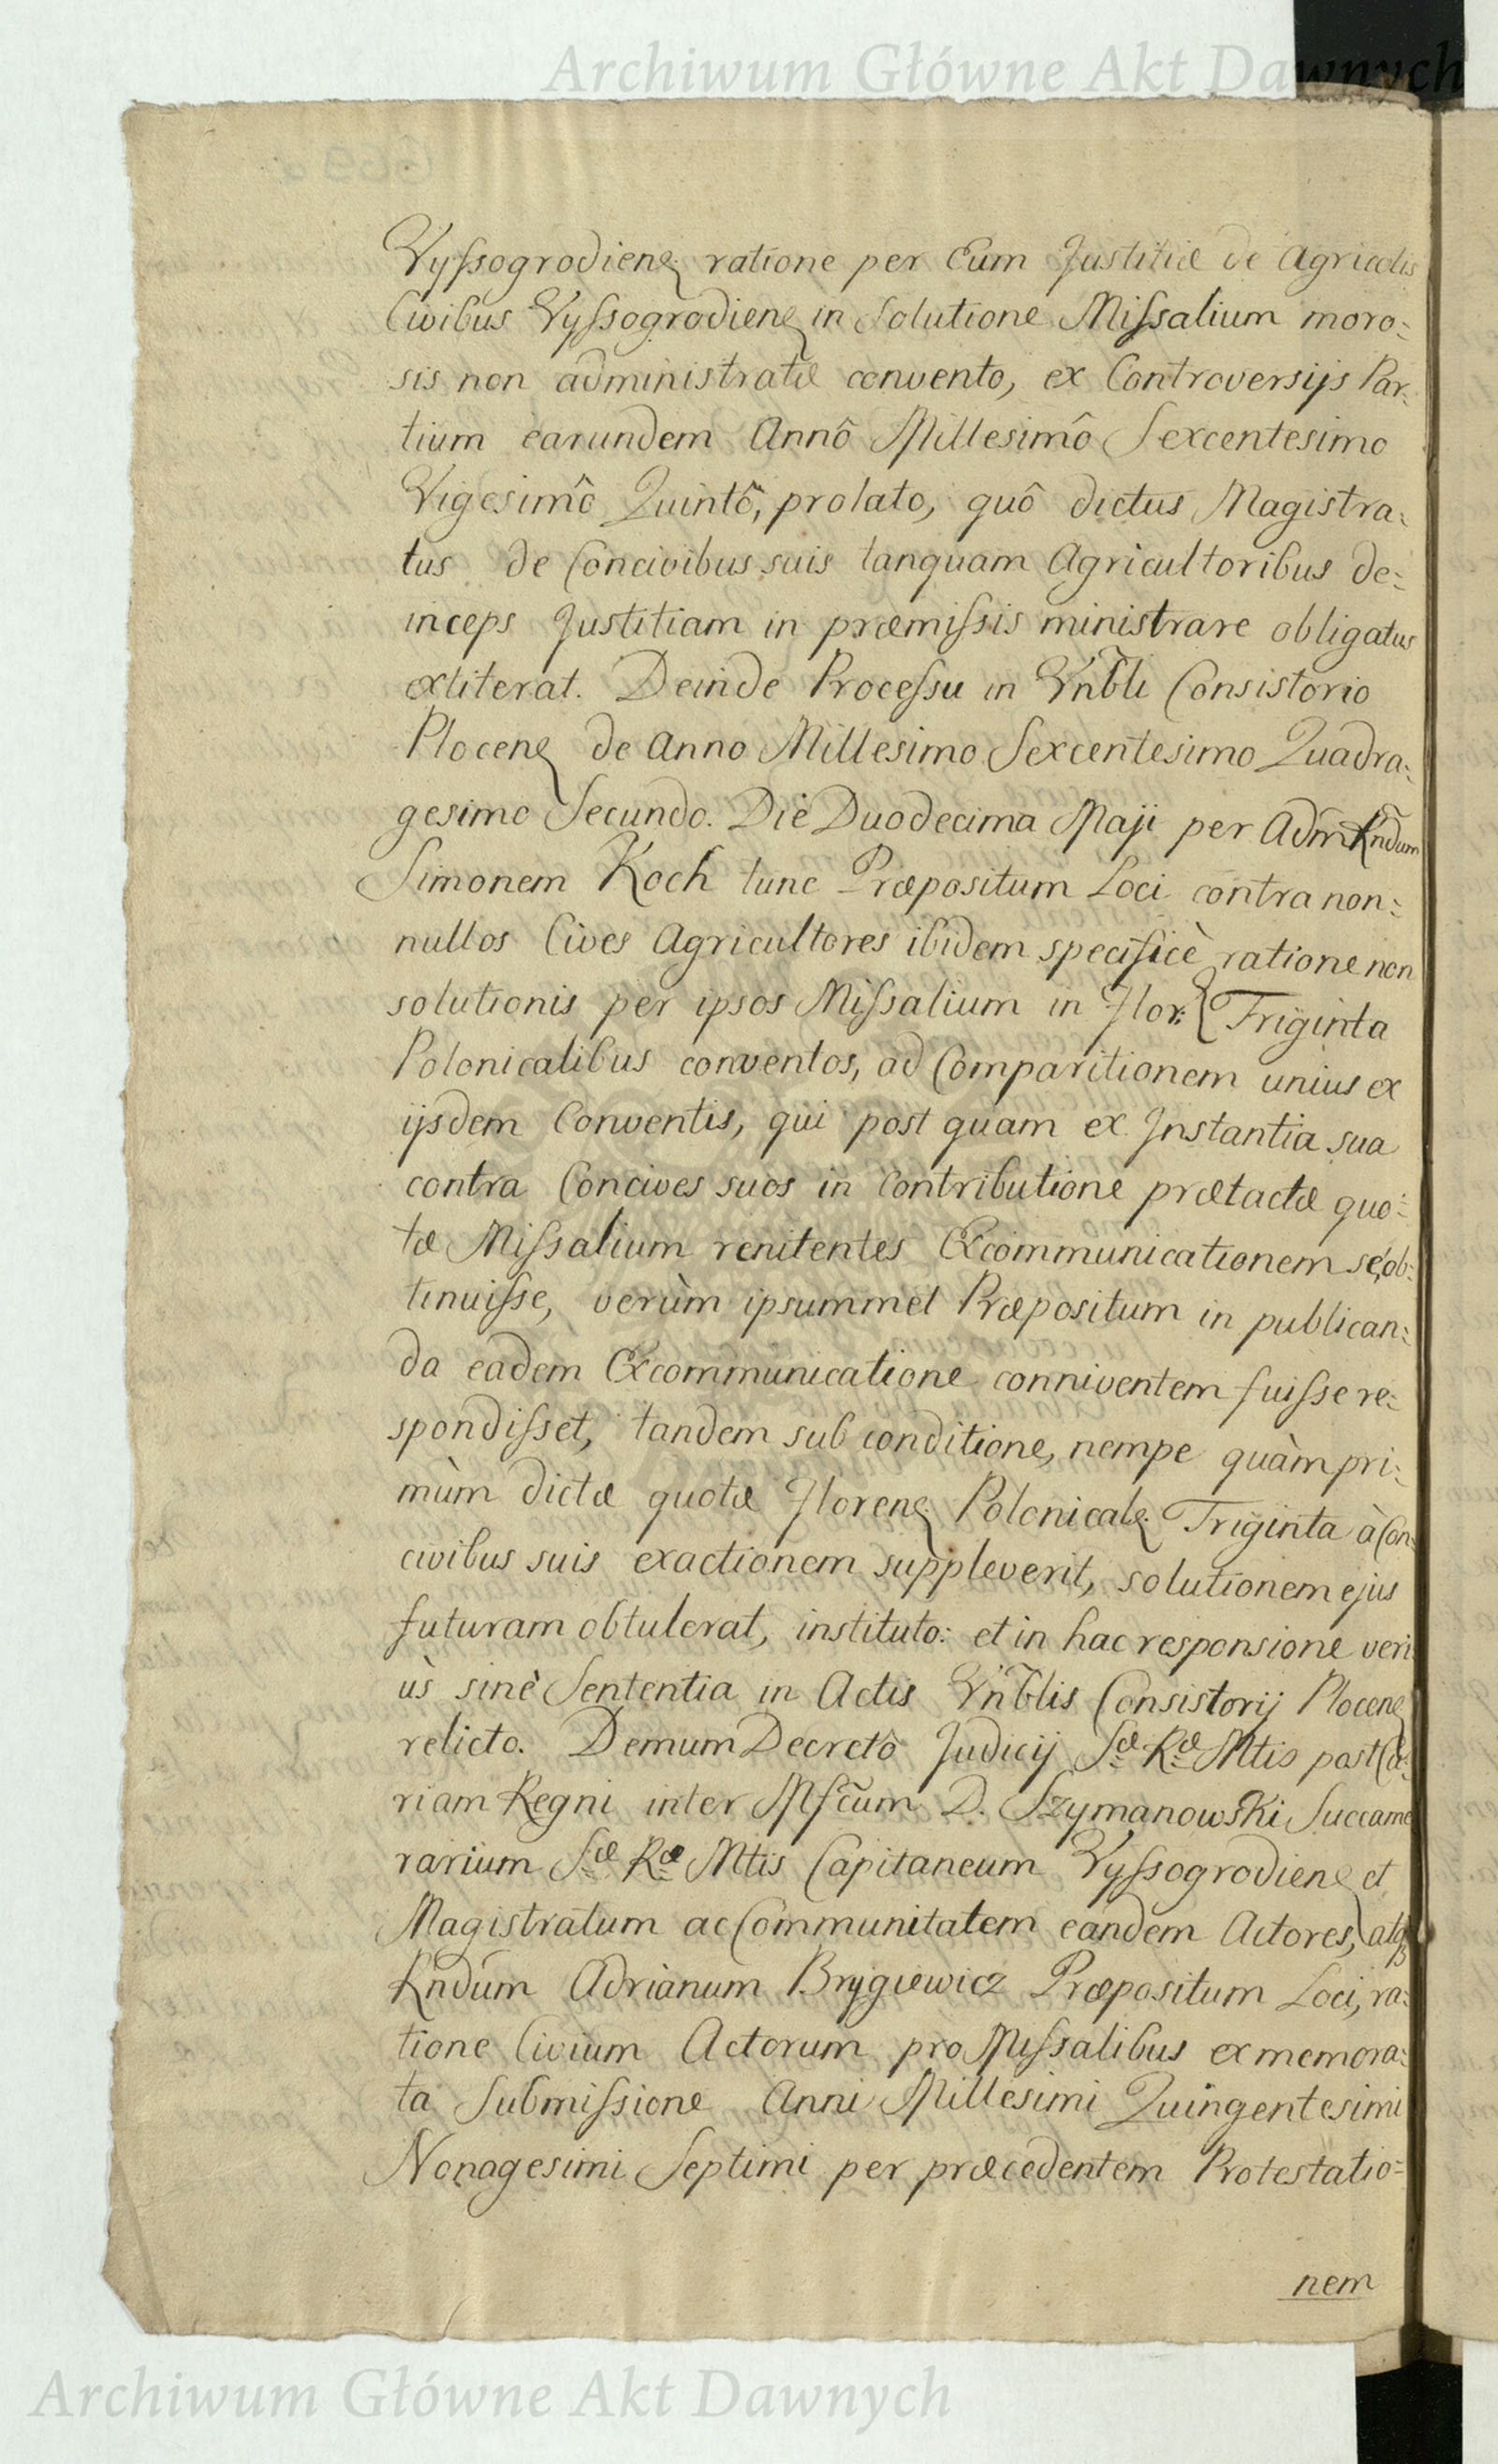 Archiwum Główne Akt Dawnych
Vyſsogrodienꝭ ratione per Eum Justitiæ de Agricolis
Civibus Vyſsogrodienꝭ in Solutione Miſsalium moro:
sis non administratæ convento, ex Controversijs Par:
tium earundem Annô Millesimô Sexcentesimo
Vigesimô Quintô, prolato, quô dictus Magistra:
tus de Concivibus suis tanquam Agricultoribus de:
inceps Justitiam in præmiſsis ministrare obligatus
extiterat. Deinde Proceſsu in Vn̅bli Consistorio
Plocenꝭ de Anno Millesimo Sexcentesimo Quadra:
gesimo Secundo. Die Duodecima Maji per Adm̅ Rn̅dum
Simonem Koch tunc Præpositum Loci contra non:
nullos Cives Agricultores ibidem specificè ratione non
solutionis per ipsos Miſsalium in Flor: Triginta
Polonicalibus conventos, ad Comparitionem unius ex
ijsdem Conventis, qui post quam ex Instantia sua
contra Concives suos in Contributione prætactæ quo:
tæ Miſsalium renitentes Excommunicationem se, ob:
tinuiſse, verùm ipsummet Præpositum in publican:
da eadem Excommunicatione conniventem fuiſse re:
spondiſset, tandem sub conditione, nempe quàm pri:
mùm dictæ quotæ Florenꝭ Polonicalꝭ Triginta à Con:
civibus suis exactionem suppleverit, solutionem ejus
futuram obtulerat, instituto: et in hac responsione veri
ùs sinè Sententia in Actis Vn̅blis Consistorij Plocenꝭ
relicto. Demum Decretô Judicij Sæ Ræ Mtis post Cu:
riam Regni inter Mſcum D. Szymanowski Succame
rarium Sæ Ræ Mtis Capitaneum Vyſsogrodienꝭ et
Magistratum ac Communitatem eandem Actores, atq
Rn̅dum Adrianum Brygiewicz Præpositum Loci, ra:
tione Civium Actorum pro Miſsalibus ex memora:
ta Submiſsione Anni Millesimi Quingentesimi
Nonagesimi Septimi per præcedentem Protestatio:
nem
Archiwum Główne Akt Dawnych